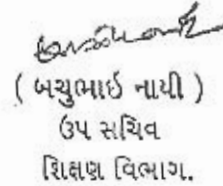 ( બચુભાઇ નાયી )
ઉપ સચિવ
શિક્ષણ વિભાગ.